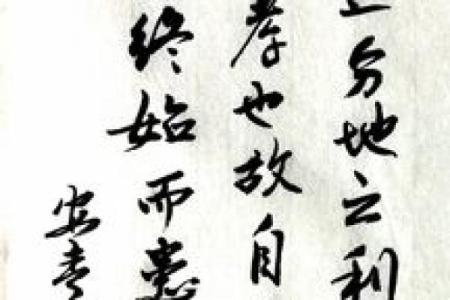 分地之利
孝也故自
終始而患